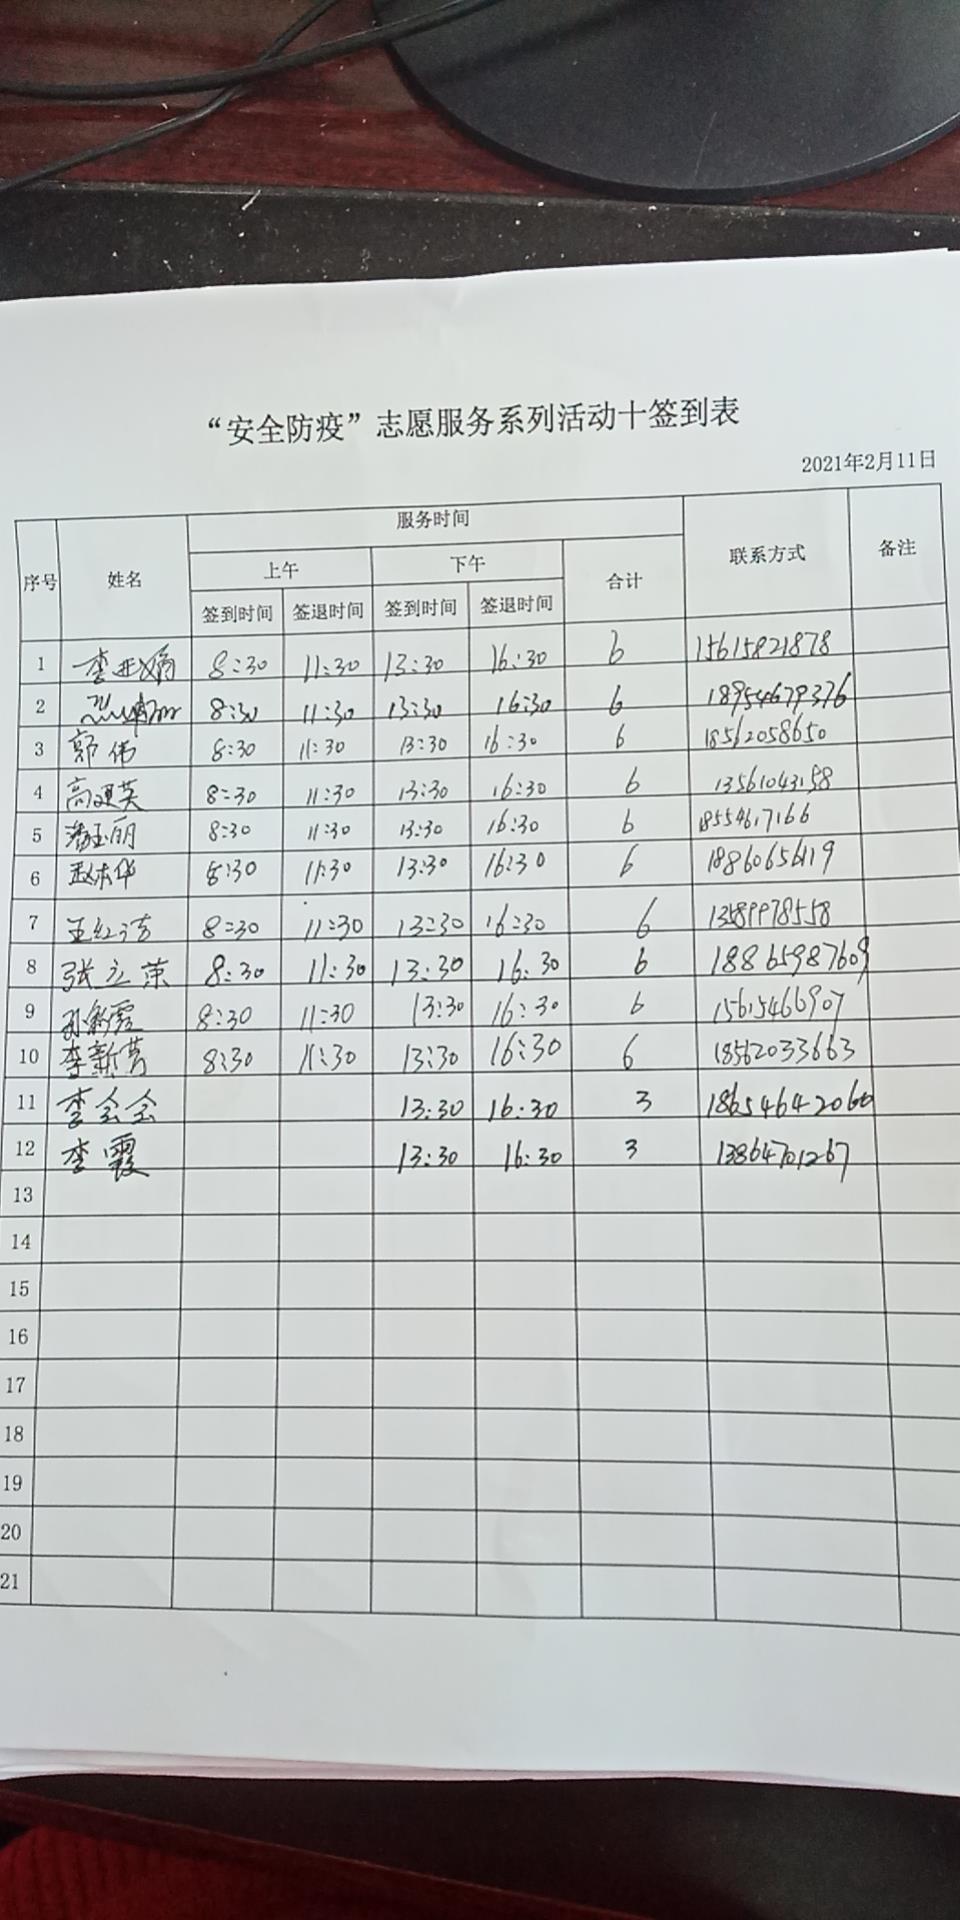 “安全防疫”志愿服务系列活动十签到表
2021年2月11日
序号 姓名 服务时间 联系方式 备注
上午 下午 合计
签到时间 签退时间 签到时间 签退时间
1 李亚娟 8:30 11:30 13:30 16:30 6 15615821878
2 8:30 11:30 13:30 16:30 6 18954679376
3 郭伟 8:30 11:30 13:30 16:30 6 18562058650
4 高迎英 8:30 11:30 13:30 16:30 6 13561043158
5 潘玉丽 8:30 11:30 13:30 16:30 6 18554617166
6 赵东华 8:30 11:30 13:30 16:30 6
7 王红洁 8:30 11:30 13:30 16:30 6 13589978558
8 张立荣 8:30 11:30 13:30 16:30 6 18865987609
9 孙彩霞 8:30 11:30 13:30 16:30 6 15615466907
10 李新芳 8:30 11:30 13:30 16:30 6 18562033663
11 李会会 13:30 16:30 3 18654642066
12 李霞 13:30 16:30 3 13864701267
13
14
15
16
17
18
19
20
21